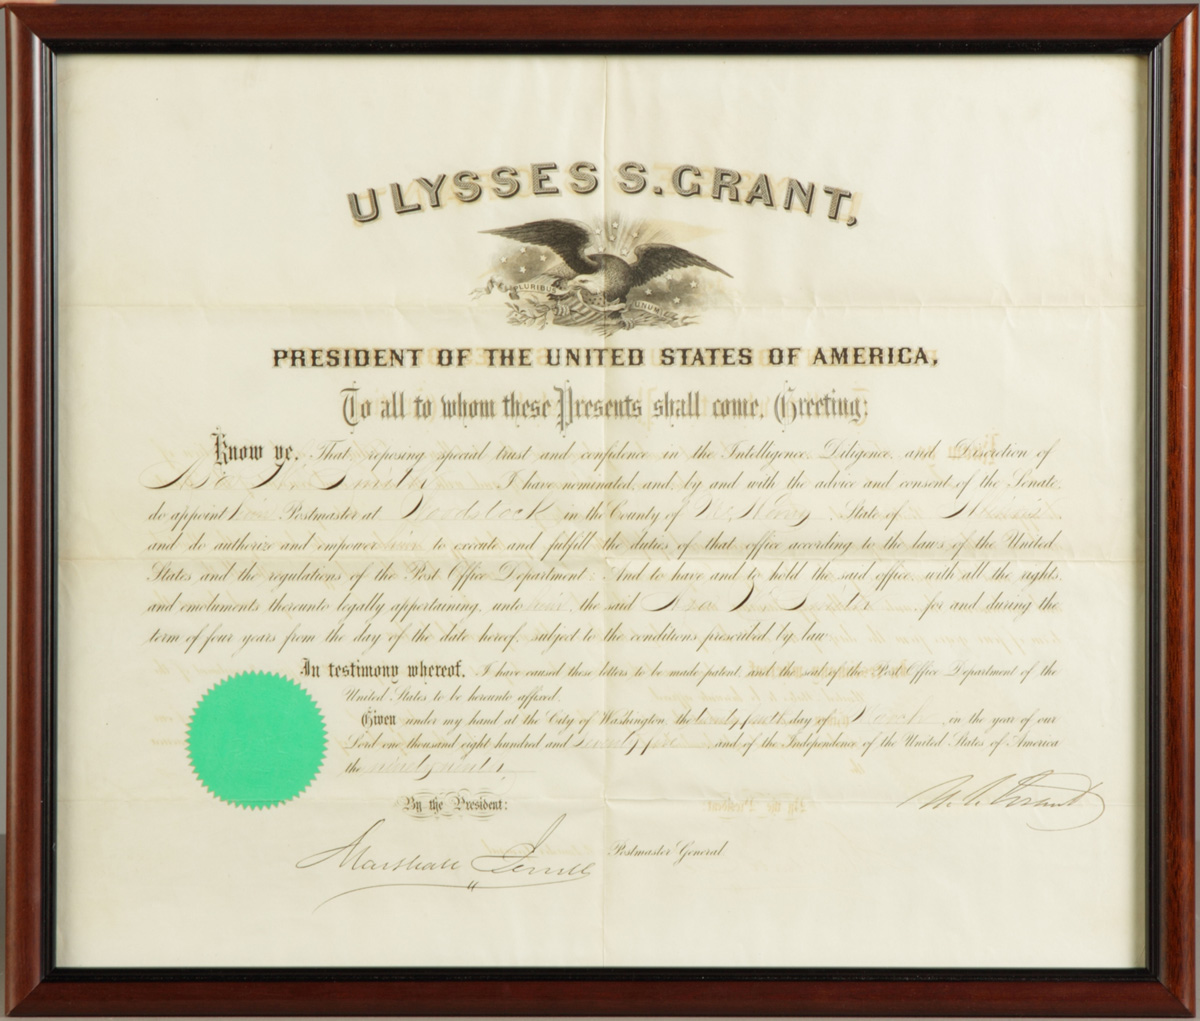 ULYSSES S. GRANT,
PLURIBUS UNUM
PRESIDENT OF THE UNITED STATES OF AMERICA,
To all to whom these Presents shall come, Greeting:
Know ye, That, reposing special trust and confidence in the Intelligence, Diligence, and Discretion of
Smith I have nominated, and, by and with the advice and consent of the Senate,
do appoint him Postmaster at Woodstock in the County of McHenry State of Illinois
and do authorize and empower him to execute and fulfill the duties of that office according to the laws of the United
States and the regulations of the Post Office Department: And to have and to hold the said office, with all the rights
and emoluments thereunto legally appertaining, unto him the said Smith for and during the
term of four years from the day of the date hereof, subject to the conditions prescribed by law
In testimony whereof, I have caused these letters to be made patent, and the seal of the Post Office Department of the
United States to be hereunto affixed.
Given under my hand at the City of Washington the day of March in the year of our
Lord one thousand eight hundred and seventy five and of the Independence of the United States of America
the ninety ninth
By the President:
U. S. Grant
Marshall Jewell Postmaster General